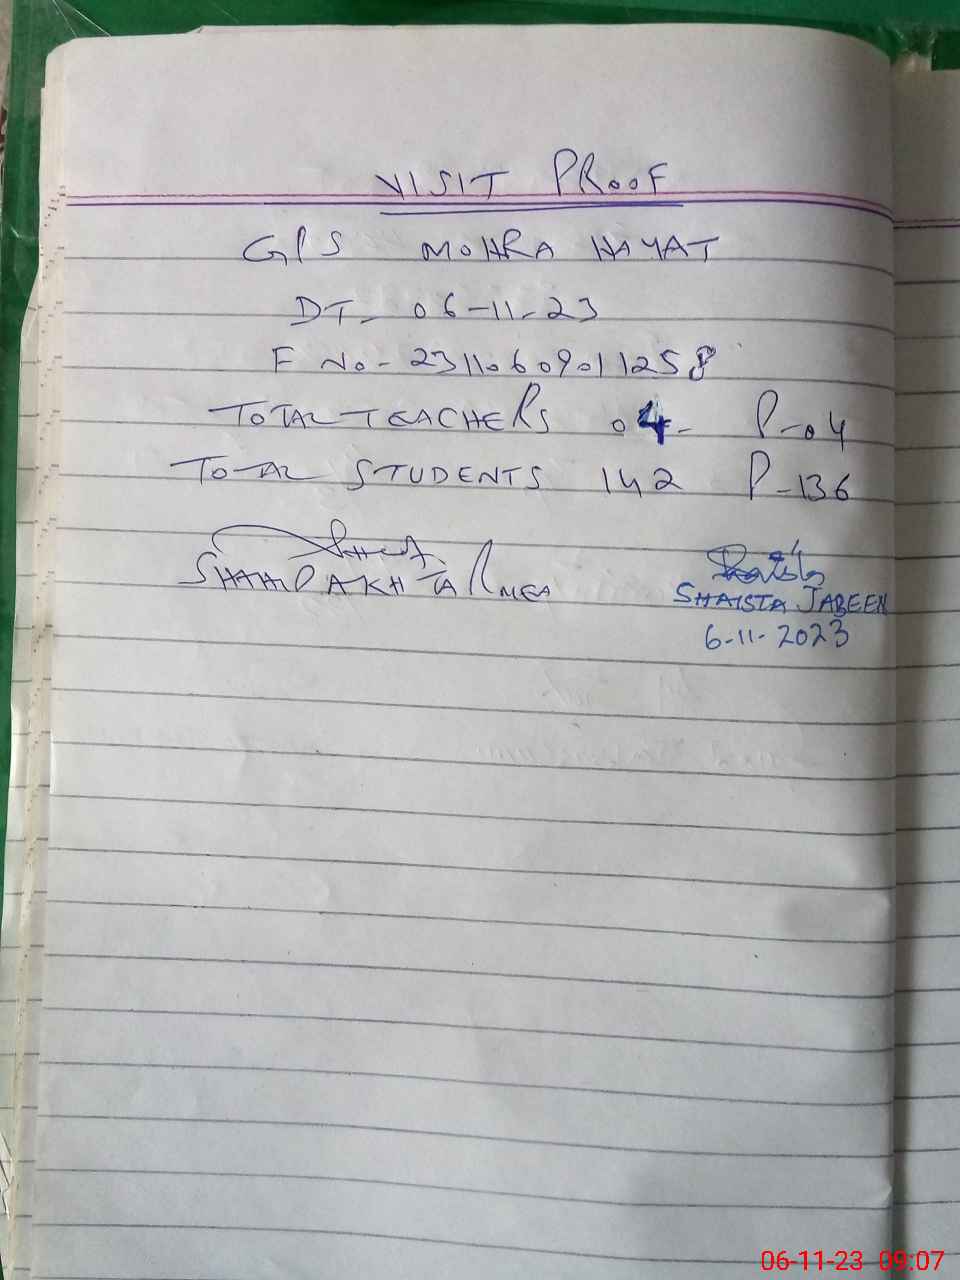 VISIT PROOF
GPS MOHRA HAYAT
DT- 06-11-23
F No- 23110609011258
TOTAL TEACHERS 04- P-04
TOTAL STUDENTS 142 P-136
SHAHID AKHTAR MEA
SHAISTA JABEEN
6-11-2023
06-11-23 09:07